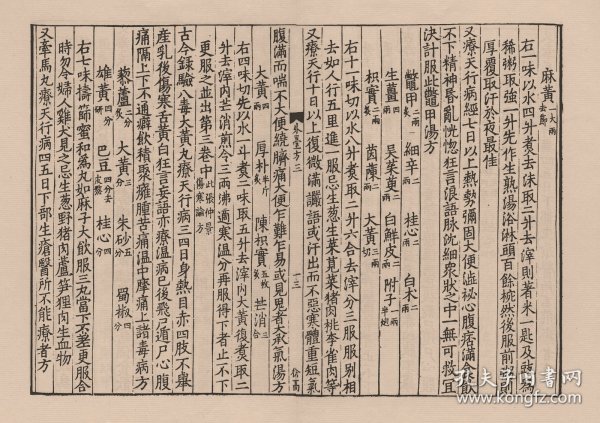 麻黄一大兩去節
右一味以水四升煮去沫取二升去滓則著米一匙及豉為
稀粥取強一升先作生熟湯浴淋頭百餘椀然後服前粥則
厚覆取汗於夜最佳
又療天行病經七日以上熱勢彌固大便祕心腹痞滿食飲
不下精神昏亂恍惚狂言浪語脉沈細衆狀之中一無可救宜
決計服此鱉甲湯方
鱉甲二兩炙 細辛二兩 桂心二兩 白朮二兩
生薑四兩 吳茱萸一兩 白鮮皮二兩 附子一兩半炮
枳實二兩炙 茵蔯二兩 大黄三兩切
右十一味切以水八升煮取二升六合去滓分三服服别相
去如人行五里進一服忌生葱生菜莧菜猪肉桃李雀肉等
又療天行十日以上腹微滿讝語或汗出而不惡寒體重短氣
卷三 一三
腹滿而喘不大便繞臍痛大便乍難乍易或見鬼者大承氣湯方
大黄四兩 厚朴半斤炙 陳枳實五枚炙 芒消三合
右四味切先以水一斗煮二味取五升去滓内大黄復煮取二
升去滓内芒消煎令三兩沸適寒溫分再服得下者止不下
更服之並出第三卷中此張仲景傷寒論方
古今錄驗八毒大黄丸療天行病三四日身熱目赤四肢不舉
産乳後傷寒舌黄白狂言妄語亦療溫病已後飛尸遁尸心腹
痛隔上下不通癖飲積聚癰腫苦痛溫中摩痛上諸毒病方
藜蘆二分炙 大黄三分 朱砂五分 蜀椒四分
雄黄四分研 巴豆四分去皮熬 桂心四分
右七味擣篩蜜和為丸如麻子大飲服三丸當下不差更服合
時勿令婦人雞犬見之忌生葱野猪肉蘆笋狸肉生血物
又牽馬丸療天行病四五日下部生瘡醫所不能療者方
孔夫子旧书网
www.kongfz.com